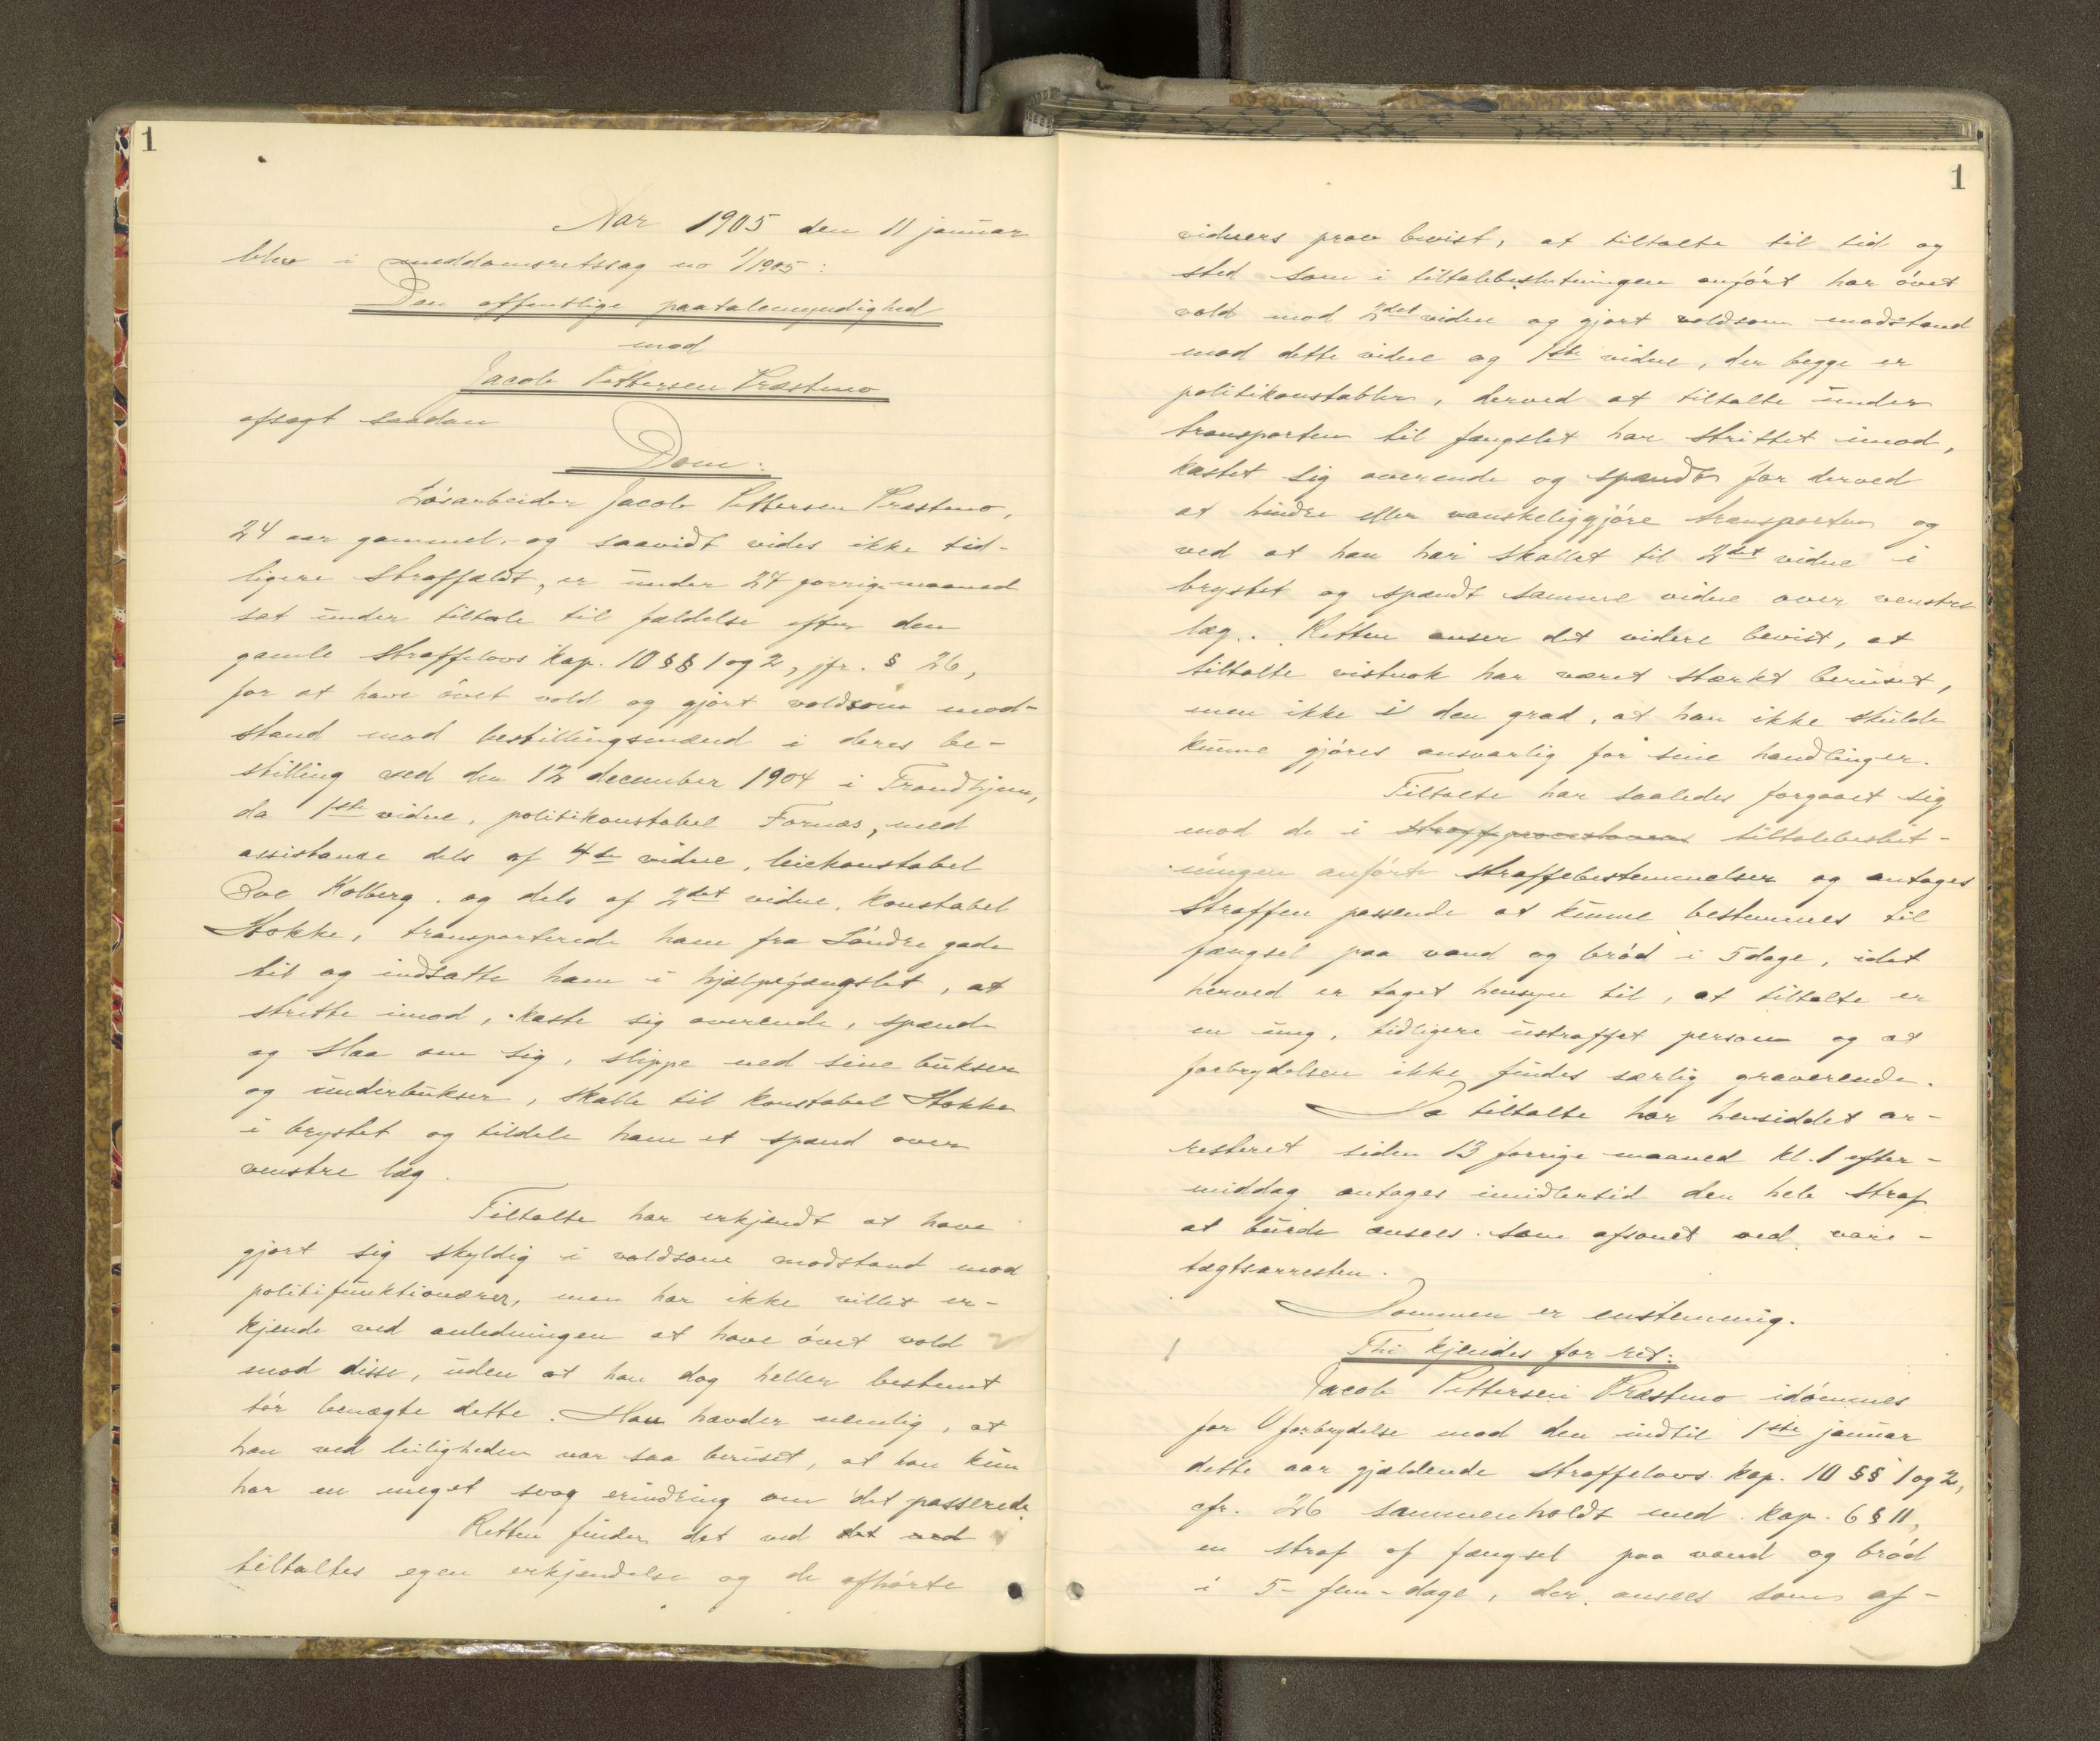 1
Aar 1905 den 11 januar
blev i meddomsretssag no 1/1905:
Den offentlige paatalemyndighed
mod
Jacob Pettersen Præstmo
afsagt saadan
Dom:
Løsarbeider Jacob Pettersen Præstmo,
24 aar gammel, og saavidt vides ikke tid-
ligere straffældt, er under 27 forrige maaned
sat under tiltale til fældelse efter den
gamle straffelovs kap. 10 §§ 1 og 2, jfr. § 26,
for at have øvet vold og gjort voldsom mod-
stand mod bestillingsmænd i deres be-
stilling ved den 12 december 1904 i Trondhjem,
da 1ste vidne, politikonstabel Fornæs, med
assistance dels af 4de vidne, leiekonstabel
Ove Kolberg, og dels af 2det vidne, konstabel
Stokke, transporterede ham fra Søndre gade
til og indsatte ham i hjælpefængslet, at
stritte imod, kaste sig overende, spænde
og slaa om sig, slippe ned sine bukser
og underbukser, skalle til konstabel Stokke
i brystet og tildele ham et spænd over
venstre læg.
Tiltalte har erkjendt at have
gjort sig skyldig i voldsom modstand mod
politifunktionærer, men har ikke villet er-
kjende ved anledningen at have øvet vold
mod disse, uden at han dog heller bestemt
tør benægte dette. Han hævder nemlig, at
han ved leiligheden var saa beruset, at han kun
har en meget svag erindring om det passerede.
Retten finder det ved det ved
tiltaltes egen erkjendelse og de afhørte
1
vidners prov bevist, at tiltalte til tid og
sted som i tiltalebeslutningen anført har øvet
vold mod 2det vidne og gjort voldsom modstand
mod dette vidne og 1ste vidne, der begge er
politikonstabler, derved at tiltalte under
transporten til fængslet har strittet imod,
kastet sig overende og spændt for derved
at hindre eller vanskeliggjøre transporten og
ved at han har skallet til 2det vidne i
brystet og spændt samme vidne over venstre
læg. Retten anser det videre bevist, at
tiltalte vistnok har været stærkt beruset,
men ikke i den grad, at han ikke skulde
kunne gjøres ansvarlig for sine handlinger.
Tiltalte har saaledes forgaaet sig
mod de i straffeproceslovens tiltalebeslut-
ningen anførte straffebestemmelser og antages
straffen passende at kunne bestemmes til
fængsel paa vand og brød i 5 dage, idet
herved er taget hensyn til, at tiltalte er
en ung, tidligere ustraffet person og at
forbrydelsen ikke findes særlig graverende.
Da tiltalte har hensiddet ar-
resteret siden 13 forrige maaned kl. 1 efter-
middag antages imidlertid den hele straf
at burde ansees som afsonet ved vare-
tægtsarresten.
Dommen er enstemmig.
Thi kjendes for ret:
Jacob Pettersen Præstmo idømmes
for forbrydelse mod den indtil 1ste januar
dette aar gjældende straffelovs kap. 10 §§ 1 og 2,
cfr. 26 sammenholdt med kap. 6 § 11,
en straf af fængsel paa vand og brød
i 5 - fem - dage, der ansees som af-